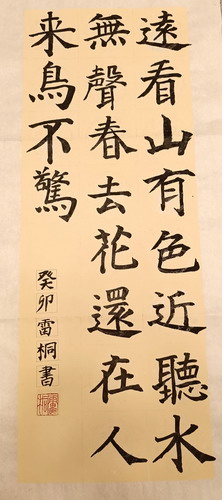 遠看山有色近聽水
無聲春去花還在人
来鳥不驚
癸卯雷桐書